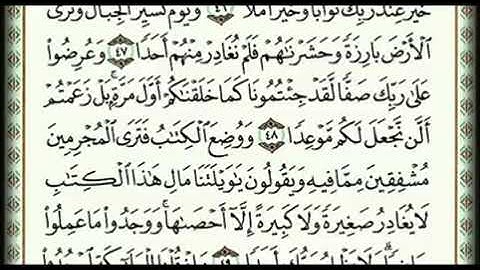 خَيْرٌ عِندَ رَبِّكَ ثَوَابًا وَخَيْرٌ أَمَلًا ٤٦ وَيَوْمَ نُسَيِّرُ ٱلْجِبَالَ وَتَرَى
ٱلْأَرْضَ بَارِزَةً وَحَشَرْنَٰهُمْ فَلَمْ نُغَادِرْ مِنْهُمْ أَحَدًا ٤٧ وَعُرِضُوا۟
عَلَىٰ رَبِّكَ صَفًّا لَّقَدْ جِئْتُمُونَا كَمَا خَلَقْنَٰكُمْ أَوَّلَ مَرَّةٍۭ بَلْ زَعَمْتُمْ
أَلَّن نَّجْعَلَ لَكُم مَّوْعِدًا ٤٨ وَوُضِعَ ٱلْكِتَٰبُ فَتَرَى ٱلْمُجْرِمِينَ
مُشْفِقِينَ مِمَّا فِيهِ وَيَقُولُونَ يَٰوَيْلَتَنَا مَالِ هَٰذَا ٱلْكِتَٰبِ
لَا يُغَادِرُ صَغِيرَةً وَلَا كَبِيرَةً إِلَّآ أَحْصَىٰهَا وَوَجَدُوا۟ مَا عَمِلُوا۟